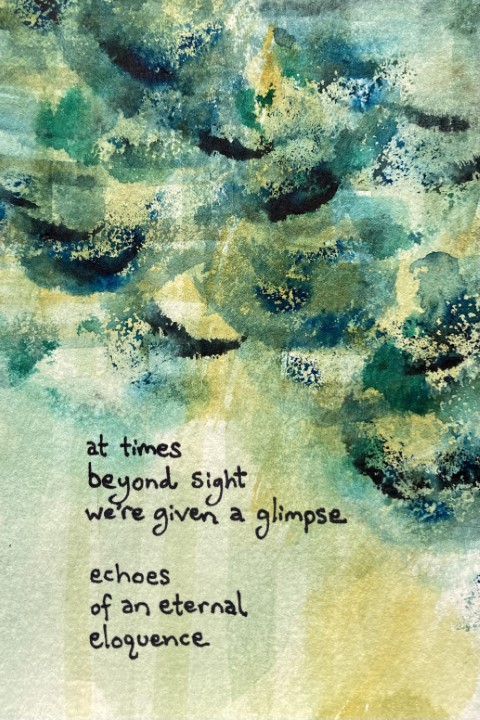 at times
beyond sight
we're given a glimpse
echoes
of an eternal
eloquence